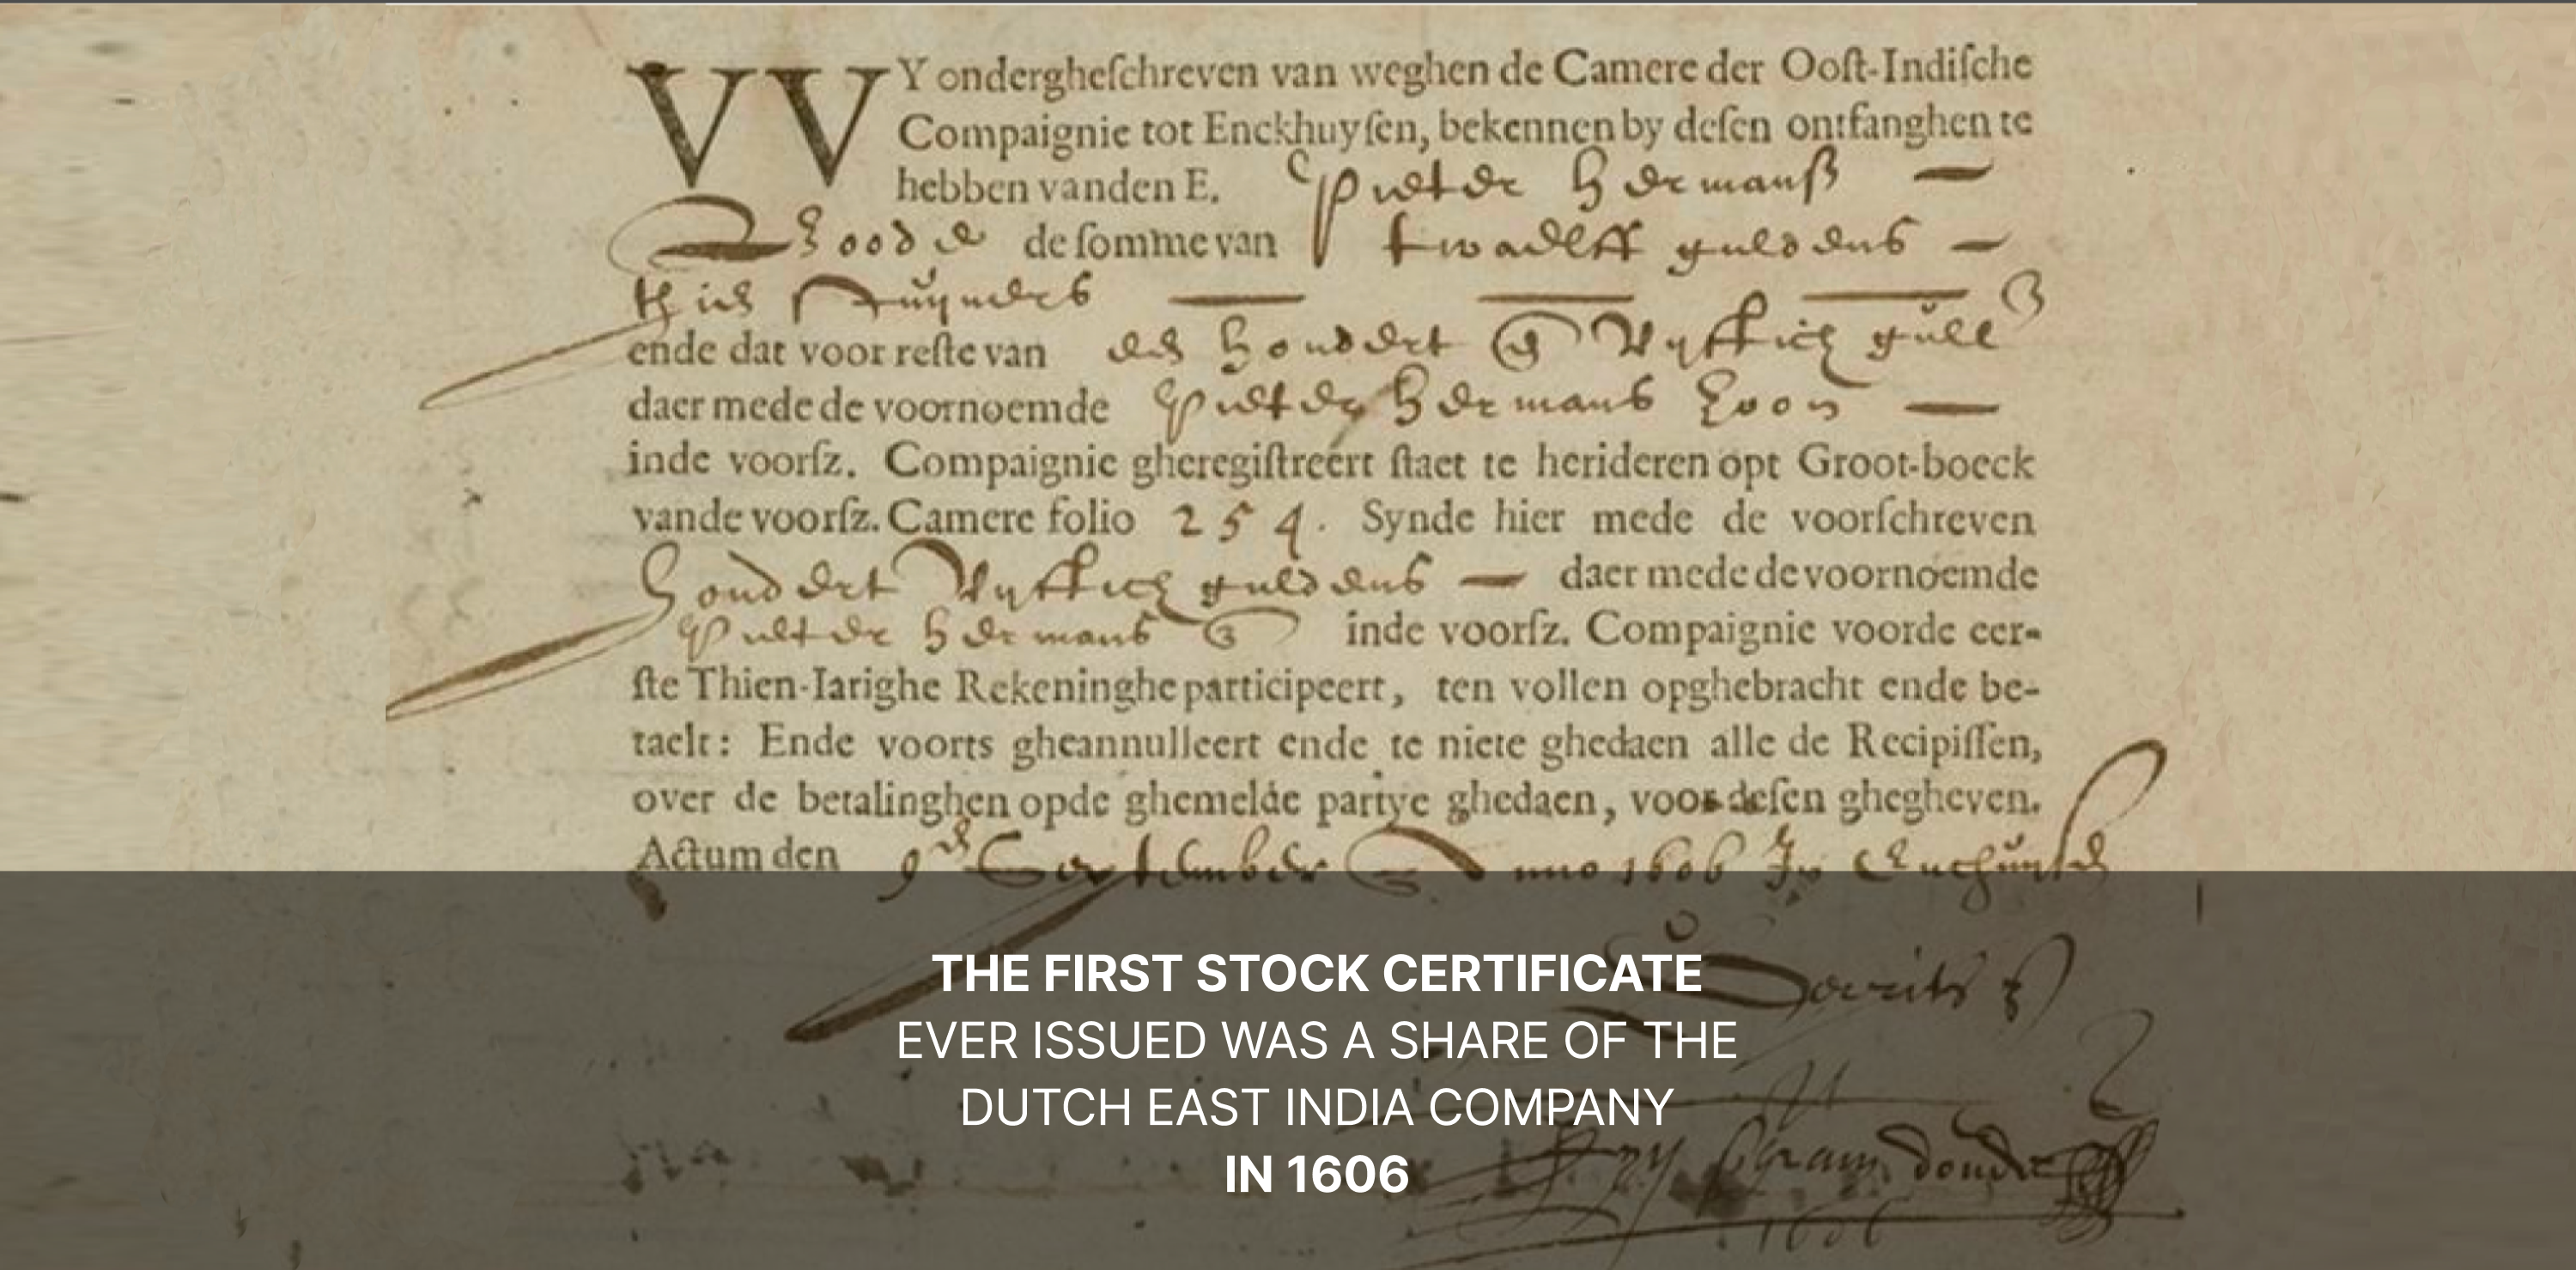 WY ondergheſchreven van weghen de Camere der Ooſt-Indiſche
Compaignie tot Enckhuyſen, bekennen by deſen ontfanghen te
hebben vanden E. Pieter Hermansz
de ſomme van twaelff guldens
ende dat voor reſte van een hondert vyfftich
daer mede de voornoemde Pieter Hermans zoon
inde voorſz. Compaignie gheregiſtreert ſtaet te herideren opt Groot-boeck
vande voorſz. Camere folio 254. Synde hier mede de voorſchreven
hondert vyfftich guldens daer mede de voornoemde
Pieter Hermans inde voorſz. Compaignie voorde eer-
ſte Thien-Iarighe Rekeninghe participeert, ten vollen opghebracht ende be-
taelt: Ende voorts gheannulleert ende te niete ghedaen alle de Recipiſſen,
over de betalinghen opde ghemelde partye ghedaen, voor deſen ghegheven.
Actum den 9 September 1606
THE FIRST STOCK CERTIFICATE
EVER ISSUED WAS A SHARE OF THE
DUTCH EAST INDIA COMPANY
IN 1606
1606